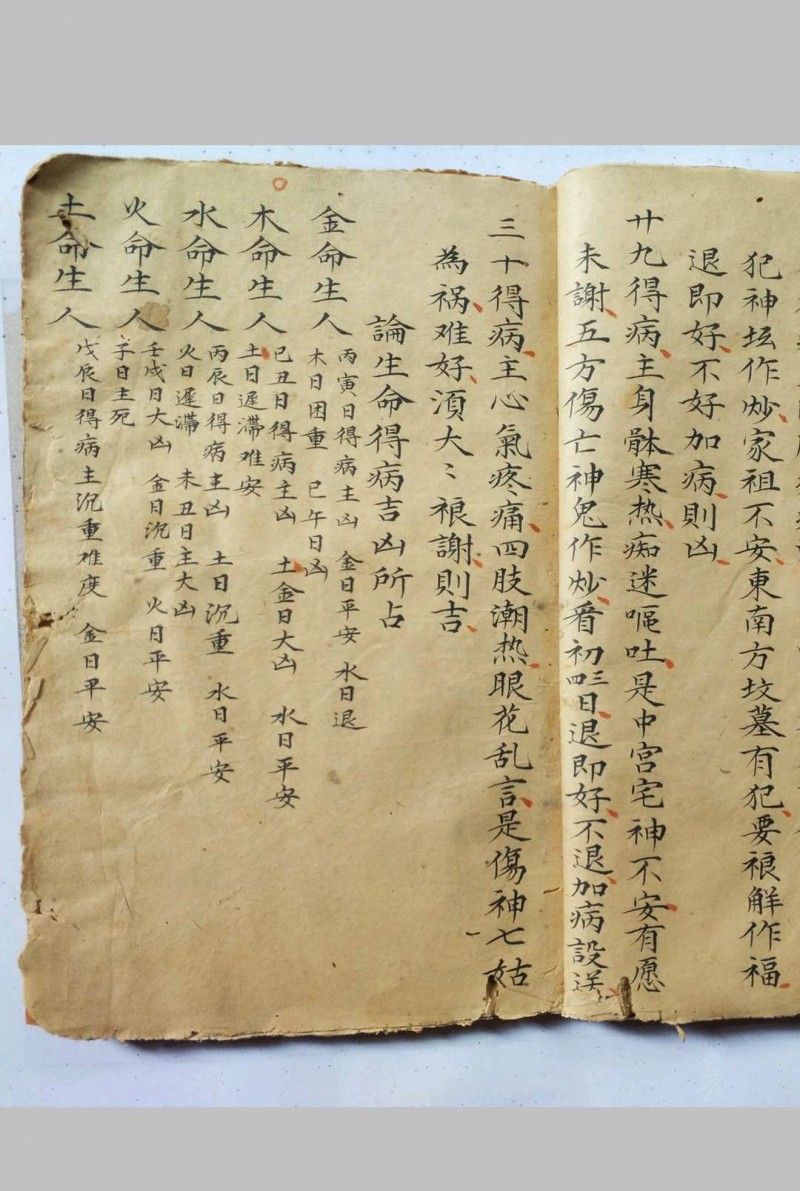 犯神坛作炒家祖不安東南方坟墓有犯要禳解作福
退即好不好加病則凶
廿九得病主身骵寒热痴迷嘔吐是中宫宅神不安有愿
未謝五方傷亡神鬼作炒看初三四日退即好不退加病設送
三十得病主心氣疼痛四肢潮热眼花乱言是傷神七姑
為祸难好湏大〻禳謝則吉
論生命得病吉凶所占
金命生人
丙寅日得病主凶 金日平安 水日退
木日困重 巳午日凶
木命生人
己丑日得病主凶 土金日大凶 水日平安
土日遲滯难安
水命生人
丙辰日得病主凶 土日沉重 水日平安
火日遲滯 未丑日主大凶
火命生人
壬戌日大凶 金日沉重 火日平安
子日主死
土命生人
戊辰日得病主沉重难度 金日平安